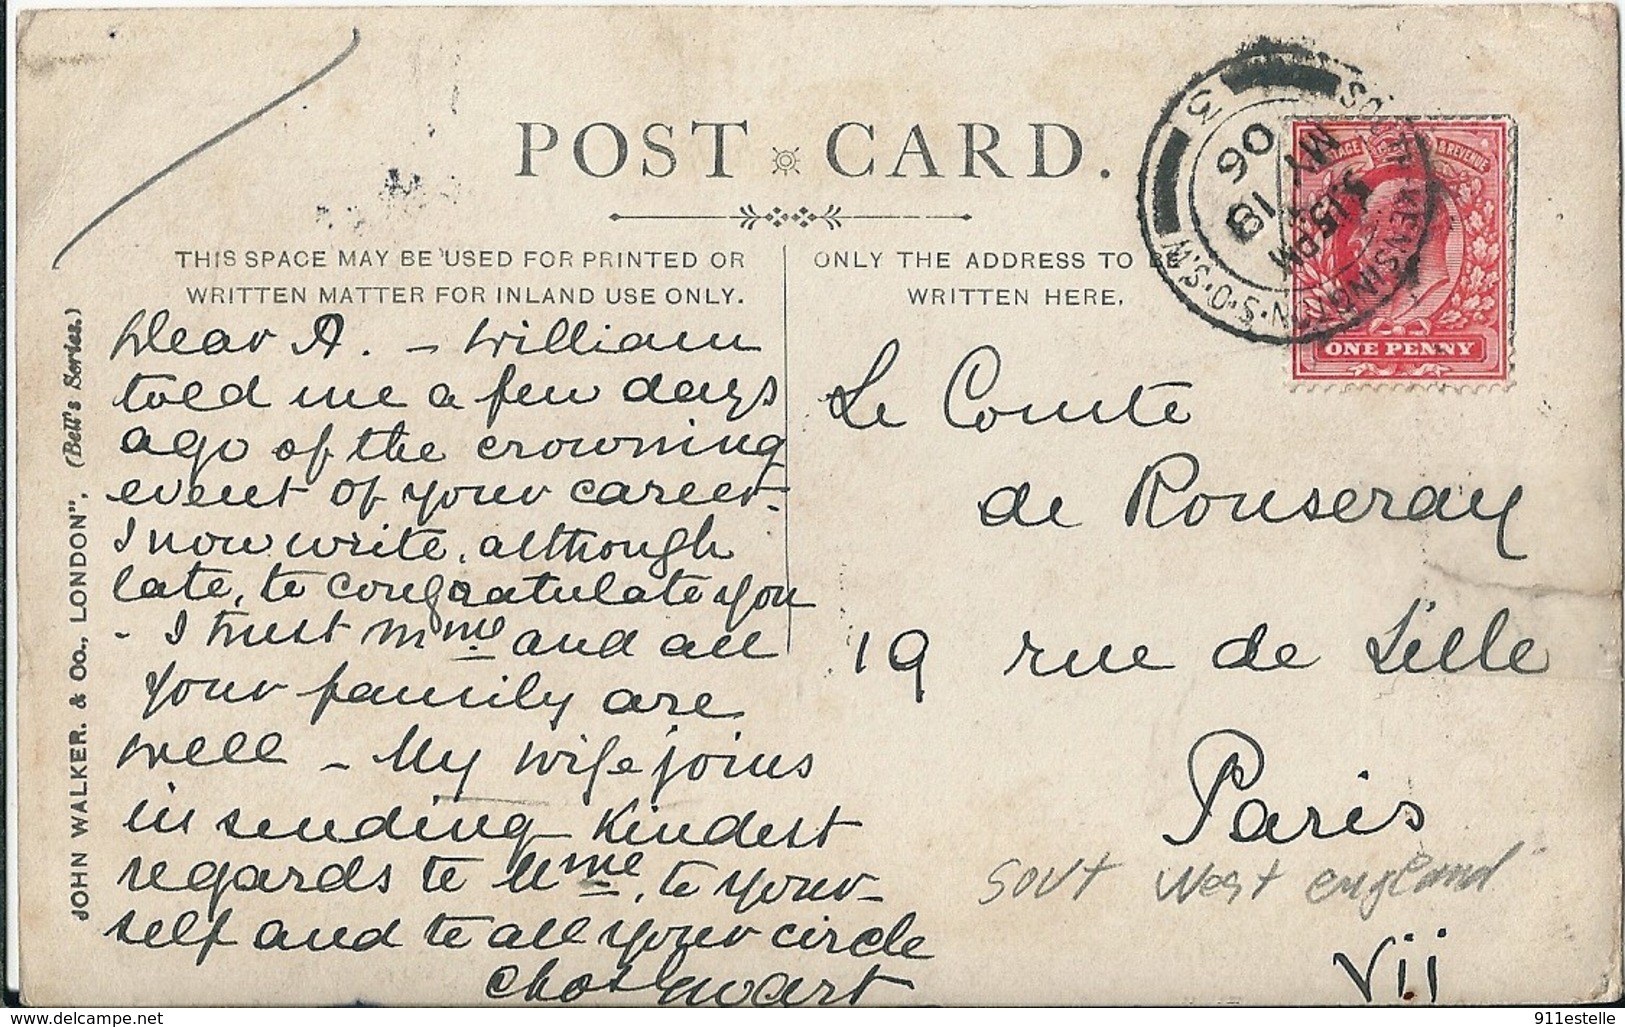 POST CARD.
THIS SPACE MAY BE USED FOR PRINTED OR
WRITTEN MATTER FOR INLAND USE ONLY.
ONLY THE ADDRESS TO BE
WRITTEN HERE.
JOHN WALKER. & Co., LONDON". (Bell's Series.)
Dear A. – William
told me a few days
ago of the crowning
event of your career.
I now write, although
late, to congratulate you
- I trust Mme and all
your family are
well – My wife joins
in sending kindest
regards to Mme, to your-
self and to all your circle
Chas
Le Comte
de Rouseray
19 rue de Lille
Paris
VII
sout West england
SOUTH KENSINGTON·S·O·S.W
3
1.15PM
MY 18
06
POSTAGE & REVENUE
ONE PENNY
www.delcampe.net
911estelle